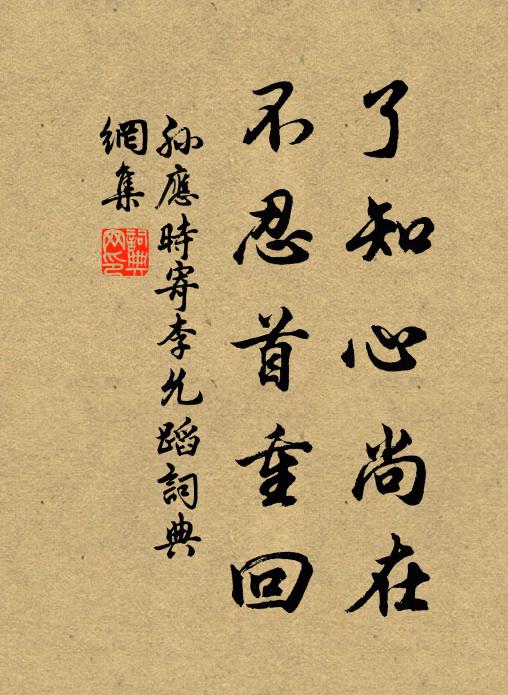 了知心尚在
不忍首重回
孫應時寄李允蹈詞典
網集
詞典
网印